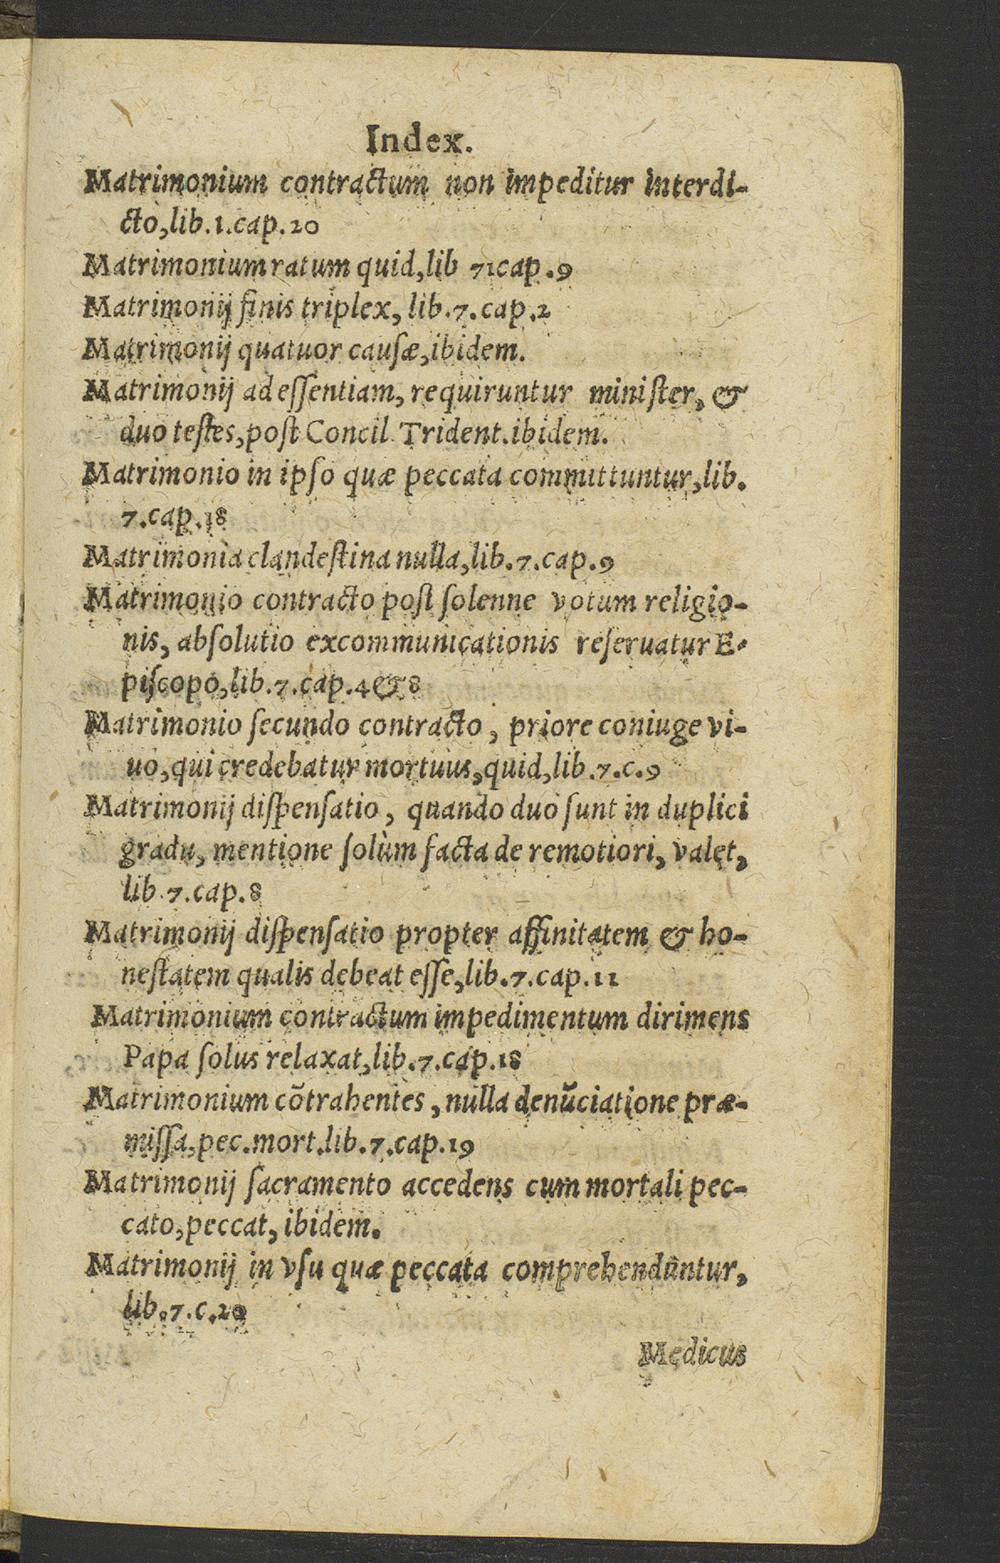 Index.
Matrimonium contractum non impeditur interdi-
cto,lib.1.cap.20
Matrimonium ratum quid,lib 71cap.9
Matrimonij finis triplex, lib.7.cap.2
Matrimonij quatuor cauſæ,ibidem.
Matrimonij ad eſſentiam, requiruntur miniſter, &
duo teſtes,poſt Concil Trident.ibidem.
Matrimonio in ipſo quæ peccata committuntur,lib.
7.cap.18
Matrimonia clandeſtina nulla,lib.7.cap.9
Matrimonio contracto poſt ſolenne votum religio-
nis, abſolutio excommunicationis reſeruatur E-
piſcopo,lib.7.cap.4&8
Matrimonio ſecundo contracto, priore coniuge vi-
uo,qui credebatur mortuus,quid,lib.7.c.9
Matrimonij diſpenſatio, quando duo ſunt in duplici
gradu, mentione ſolùm facta de remotiori, valet,
lib.7.cap.8
Matrimonij diſpenſatio propter affinitatem & ho-
neſtatem qualis debeat eſſe,lib.7.cap.11
Matrimonium contractum impedimentum dirimens
Papa ſolus relaxat,lib.7.cap.18
Matrimonium cōtrahentes, nulla denūciatione præ-
miſſa,pec.mort.lib.7.cap.19
Matrimonij ſacramento accedens cum mortali pec-
cato,peccat, ibidem.
Matrimonij in vſu quæ peccata comprehendūntur,
lib.7.c.20
Medicus